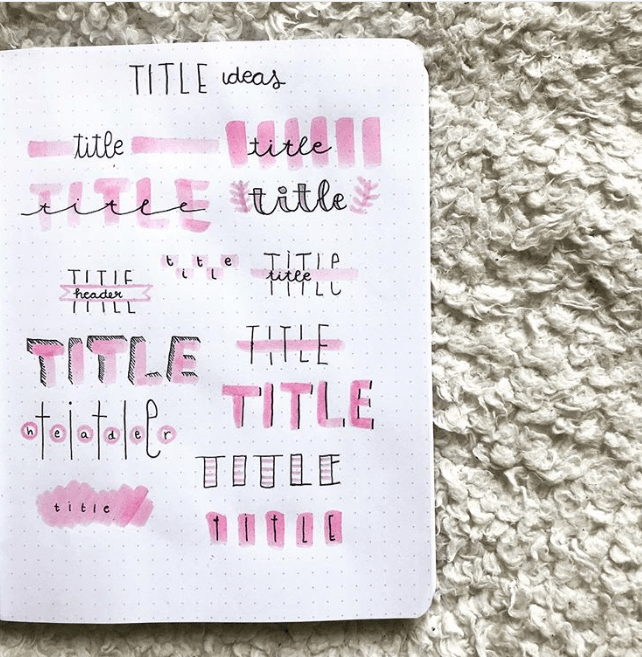 TITLE ideas
title
title
title
title
TITLE
title
title
TITLE
header
TITLE
title
TITLE
TITLE
TITLE
title
header
TITLE
title
TITLE